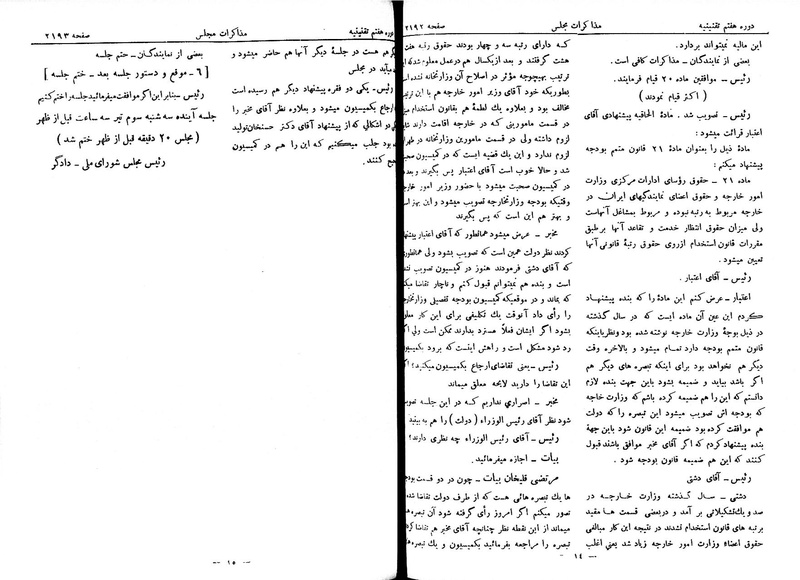 دوره هفتم تقنینیه
مذاکرات مجلس
صفحه ۲۱۹۲
این مالیه نمیتواند بردارد.
بعضی از نمایندگان ـ مذاکرات کافی است.
رئیس ـ موافقین ماده ۲۰ قیام فرمایند.
( اکثر قیام نمودند )
رئیس ـ تصویب شد . مادۀ الحاقیه پیشنهادی آقای
اعتبار قرائت میشود :
مادۀ ذیل را بعنوان مادۀ ۲۱ قانون متمم بودجه
پیشنهاد میکنم :
ماده ۲۱ ـ حقوق رؤسای ادارات مرکزی وزارت
امور خارجه و حقوق اعضای نمایندگیهای ایران در
خارجه مربوط به رتبه نبوده و مربوط بمشاغل آنهاست
ولی میزان حقوق انتظار خدمت و تقاعد آنها برطبق
مقررات قانون استخدام ازروی حقوق رتبۀ قانونی آنها
تعیین میشود .
رئیس ـ آقای اعتبار .
اعتبار ـ عرض کنم این مادۀ را که بنده پیشنهاد
کردم این عین آن ماده ایست که در سال گذشته
در ذیل بوجۀ وزارت خارجه نوشته شده بود ونظر باینکه
قانون متمم بودجه دارد تمام میشود و بالاخره وقت
دیگر هم نخواهد بود برای اینکه تبصره های دیگر هم
اگر باشد بیاید و ضمیمه بشود باین جهت بنده لازم
دانستم که این را هم ضمیمه کرده باشم که وزارت خاجه
که بودجه اش تصویب میشود این تبصره را که دولت
هم موافقت کرده بود ضمیمه این قانون شود باین جهة
بنده پیشنهاد کردم که اگر آقای مخبر موافق باشند قبول
کنند که این هم ضمیمه قانون بودجه شود .
رئیس ـ آقای دشتی
دشتی ـ سال گذشته وزارت خارجه در
صدو یك تشکیلاتی بر آمد و دربعضی قسمت ها مقید
برتبه های قانون استخدام نشدند در نتیجه این کار مبالغی
حقوق اعضاء وزارت امور خارجه زیاد شد یعنی اغلب
که دارای رتبه سه و چهار بودند حقوق رتبه هفت
هشت گرفتند و بعد ازیکسال هم درعمل معلوم شد که
ترتیب بهیچوجه مؤثر در اصلاح آن وزارتخانه نشده
بطوریکه خود آقای وزیر امور خارجه هم با این ترتیب
مخالف بود و بعلاوه یك لطمۀ هم بقانون استخدام
در قسمت مامورینی که در خارجه اقامت دارند
لزوم داشته ولی در قسمت مامورین وزارتخانه در طهران
لزوم ندارد و این یك قضیه ایست که در کمیسیون صحبت
شد و حالا خوب است آقای اعتبار پس بگیرند وبعد
در کمیسیون صحبت میشود با حضور وزیر امور خارجه
وقتیکه بودجه وزارتخارجه تصویب میشود و این بهتر
و بهتر هم این است که پس بگیرند
مخبر ـ عرض میشود همانطور که آقای اعتبار پیشنهاد
کردند نظر دولت همین است که تصویب بشود ولی همانطوری
که آقای دشتی فرمودند هنوز در کمیسیون تصویب نشده
است و بنده هم نمیتوانم قبول کنم و ناچار تقاضا میکنم
که بماند و در موقعیکه کمیسیون بودجه تفصیلی وزارتخارجه
را رأی داد آنوقت یك تکلیفی برای این کار معلوم
بشود اگر ایشان فعلاً مسترد بدارند ممکن است ولی اگر
رد شود مشکل است و راهش اینست که برود بکمیسیون
رئیس ـ یعنی تقاضای ارجاع بکمیسیون میکنید؟ اگر
این تقاضا را دارید لایحه معلق میماند
مخبر ـ اصراری نداریم که در این جلسه تصویب
شود نظر آقای رئیس الوزراء ( دولت ) را هم به بینید
رئیس ـ آقای رئیس الوزراء چه نظری دارند؟
بیات ـ اجازه میفرمائید.
مرتضی قلیخان بیات ـ چون در دو قسمت بودجه
ها یك تبصره هائی هست که از طرف دولت تقاضا شده
تصور میکنم اگر امروز رأی گرفته شود آن تبصره ها
میماند از این نقطه نظر چنانچه آقای مخبر هم تقاضا کردند
تبصره را مراجعه بفرمائید بکمیسیون و یك تبصره های
ـ ۱۴ ـ
دوره هفتم تقنینیه
مذاکرات مجلس
صفحه ۲۱۹۳
دیگرهم هست در جلسۀ دیگر آنها هم حاضر میشود و
میآید در مجلس
رئیس ـ یکی دو فقره پیشنهاد دیگر هم رسیده است
ارجاع بکمیسیون میشود و بعلاوه نظر آقای مخبر را
در اشکالی که از پیشنهاد آقای دکتر حسنخان تولید
شده بود جلب میکنیم که این را هم در کمیسیون
کنند .
بعضی از نمایندگان ـ ختم جلسه
[ ۶ ـ موقع و دستور جلسه بعد ـ ختم جلسه ]
رئیس ـ بنابر این اگر موافقت میفرمائید جلسه را ختم کنیم
جلسه آینده سه شنبه سوم تیر سه ساعت قبل از ظهر
( مجلس ۲۰ دقیقه قبل از ظهر ختم شد )
رئیس مجلس شورای ملی ـ دادگر
ـ ۱۵ ـ